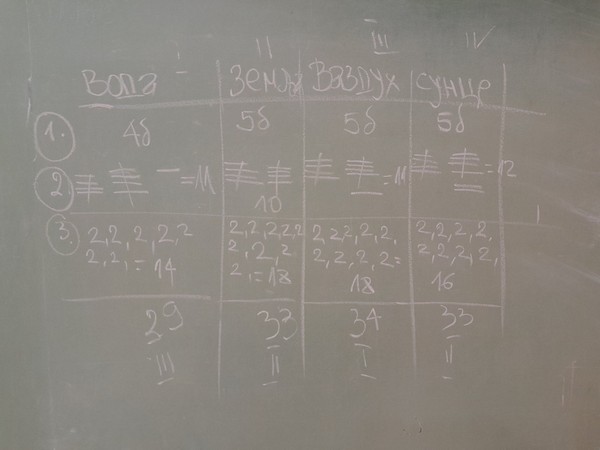 I II III IV
Вода Земља Ваздух Сунце
1. 4б 5б 5б 5б
2. =11 10 =11 =12
3. 2,2,2,2,2 2,2,2,2,2 2,2,2,2,2, 2,2,2,2,
2,2,=14 2,2,2 2,2,2,2= 2,2,2,2,
2,=18 18 16
29 33 34 33
III II I II